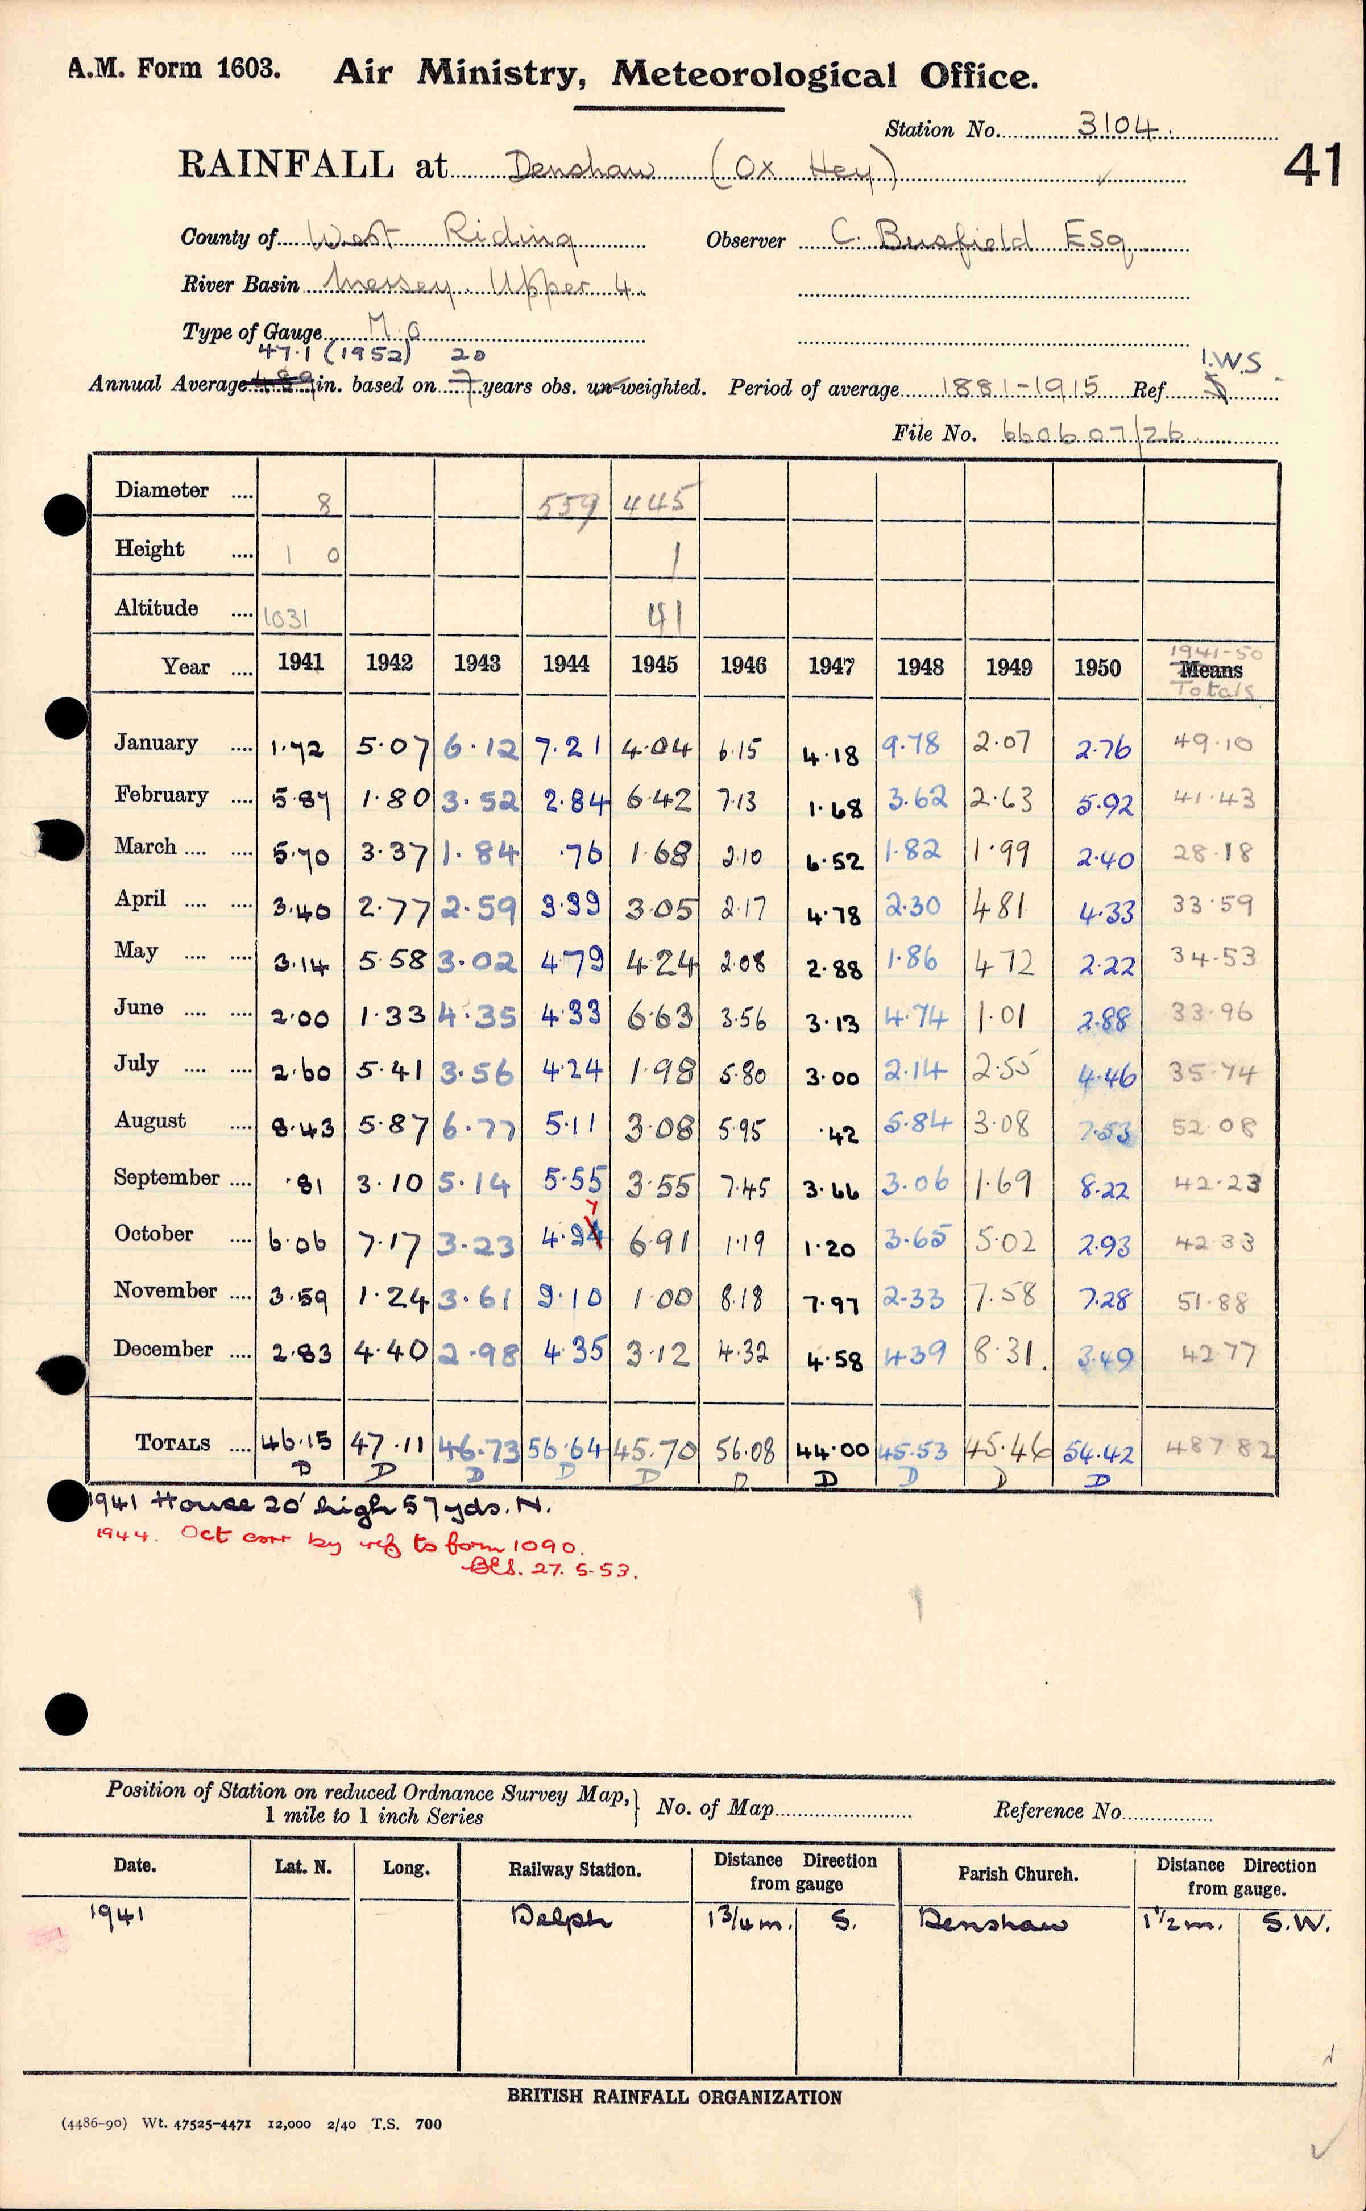 A.M. Form 1603. Air Ministry, Meteorological Office.
Station No. 3104.
41
RAINFALL at Denshaw (Ox Hey)
County of West Riding Observer C. Busfield Esq
River Basin Mersey. Upper 4.
Type of Gauge M.O
47.1 (1952) 20 I.W.S
Annual Average 489 in. based on 7 years obs. un-weighted. Period of average 1881-1915 Ref.
File No. 660607/26
Diameter .... 8 559 445
Height .... 1 0 1
Altitude .... 1031 41
1941-50
Year .... 1941 1942 1943 1944 1945 1946 1947 1948 1949 1950 Means
Totals
January .... 1.72 5.07 6.12 7.21 4.04 6.15 4.18 9.78 2.07 2.76 49.10
February .... 5.87 1.80 3.52 2.84 6.42 7.13 1.68 3.62 2.63 5.92 41.43
March .... .... 5.70 3.37 1.84 .76 1.68 2.10 6.52 1.82 1.99 2.40 28.18
April .... .... 3.40 2.77 2.59 3.39 3.05 2.17 4.78 2.30 4.81 4.33 33.59
May .... .... 3.14 5.58 3.02 4.79 4.24 2.08 2.88 1.86 4.72 2.22 34.53
June .... .... 2.00 1.33 4.35 4.33 6.63 3.56 3.13 4.74 1.01 2.88 33.96
July .... .... 2.60 5.41 3.56 4.24 1.98 5.80 3.00 2.14 2.55 4.46 35.74
August .... 8.43 5.87 6.77 5.11 3.08 5.95 .42 5.84 3.08 7.53 52.08
September .... .81 3.10 5.14 5.55 3.55 7.45 3.66 3.06 1.69 8.22 42.23
7
October .... 6.06 7.17 3.23 4.94 6.91 1.19 1.20 3.65 5.02 2.93 42.33
November .... 3.59 1.24 3.61 9.10 1.00 8.18 7.97 2.33 7.58 7.28 51.88
December .... 2.83 4.40 2.98 4.35 3.12 4.32 4.58 4.39 8.31. 3.49 42.77
TOTALS .... 46.15 47.11 46.73 56.64 45.70 56.08 44.00 45.53 45.46 54.42 487.82
D D D D D D D D D D
1941 House 20' high 57 yds. N.
1944. Oct corr by ref to form 1090.
27.5.53.
Position of Station on reduced Ordnance Survey Map, } No. of Map Reference No.
1 mile to 1 inch Series
Date. Lat. N. Long. Railway Station. Distance Direction from gauge Parish Church. Distance Direction from gauge.
1941 Delph 1 3/4 m. S. Denshaw 1 1/2 m. S.W.
BRITISH RAINFALL ORGANIZATION
(4486-90) Wt. 47525-4471 12,000 2/40 T.S. 700